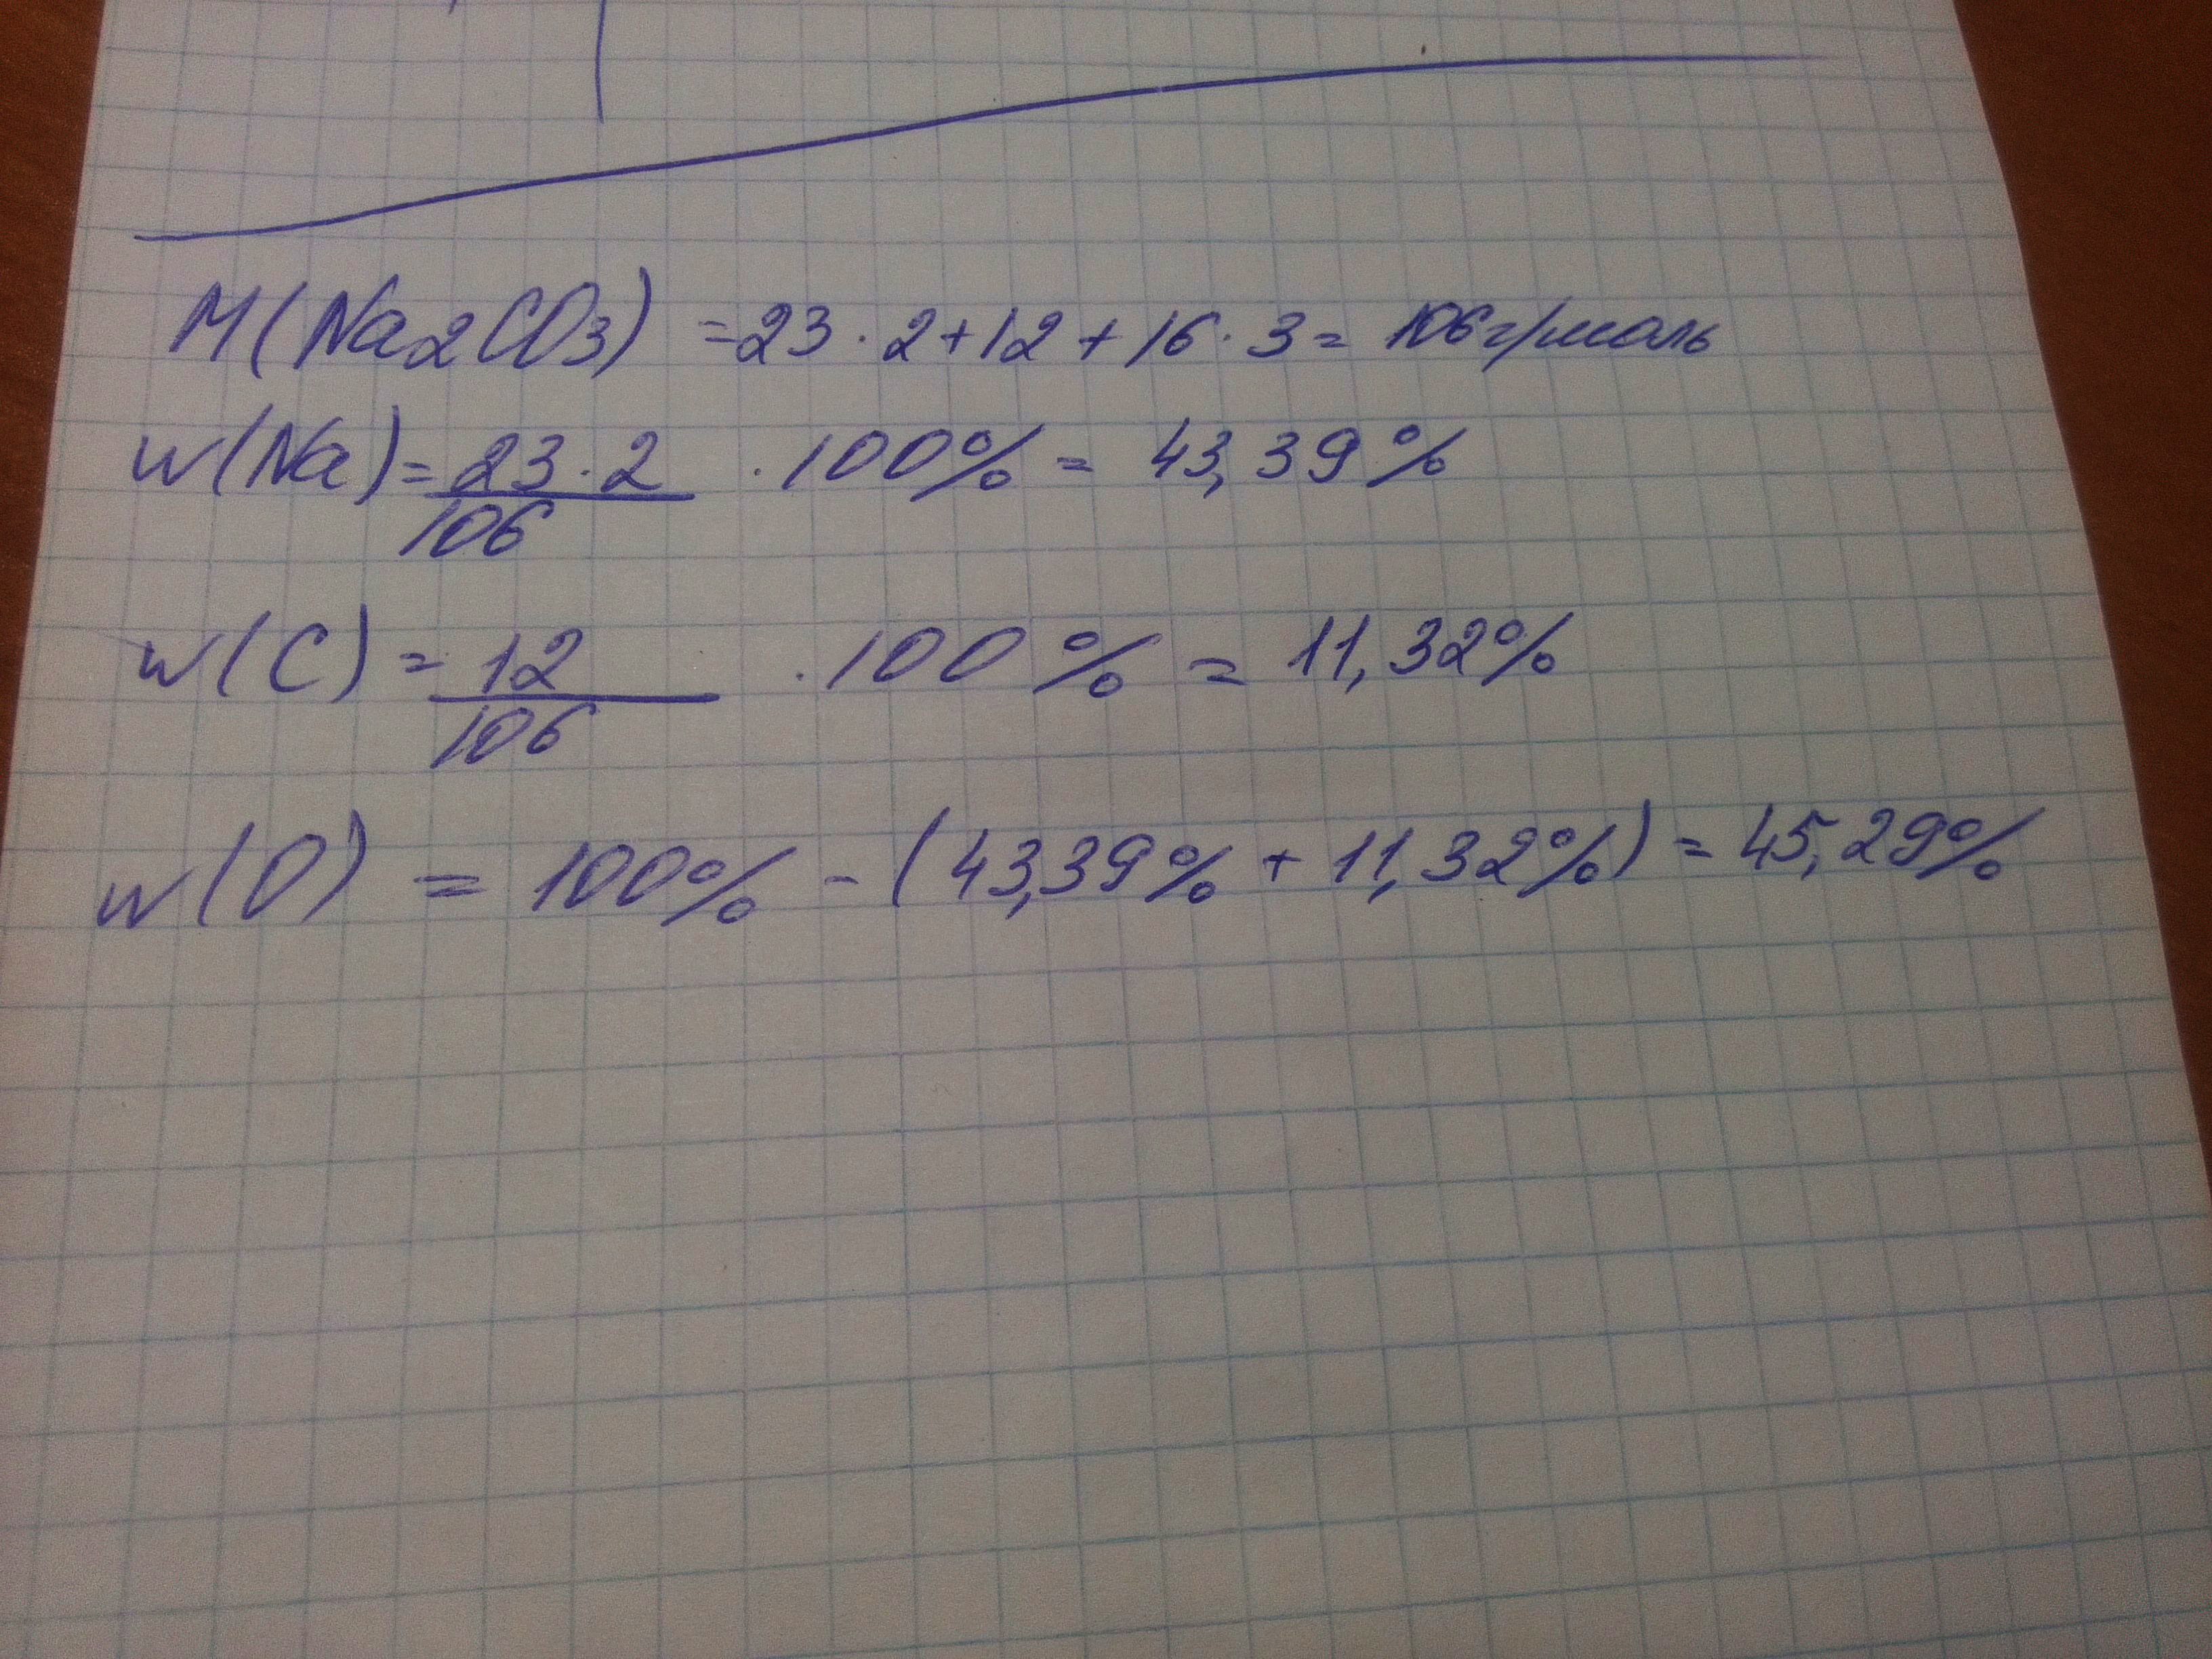 M(Na2CO3) = 23 · 2 + 12 + 16 · 3 = 106 г/моль
w(Na) = 23 · 2 / 106 · 100% = 43,39%
w(C) = 12 / 106 · 100% = 11,32%
w(O) = 100% - (43,39% + 11,32%) = 45,29%